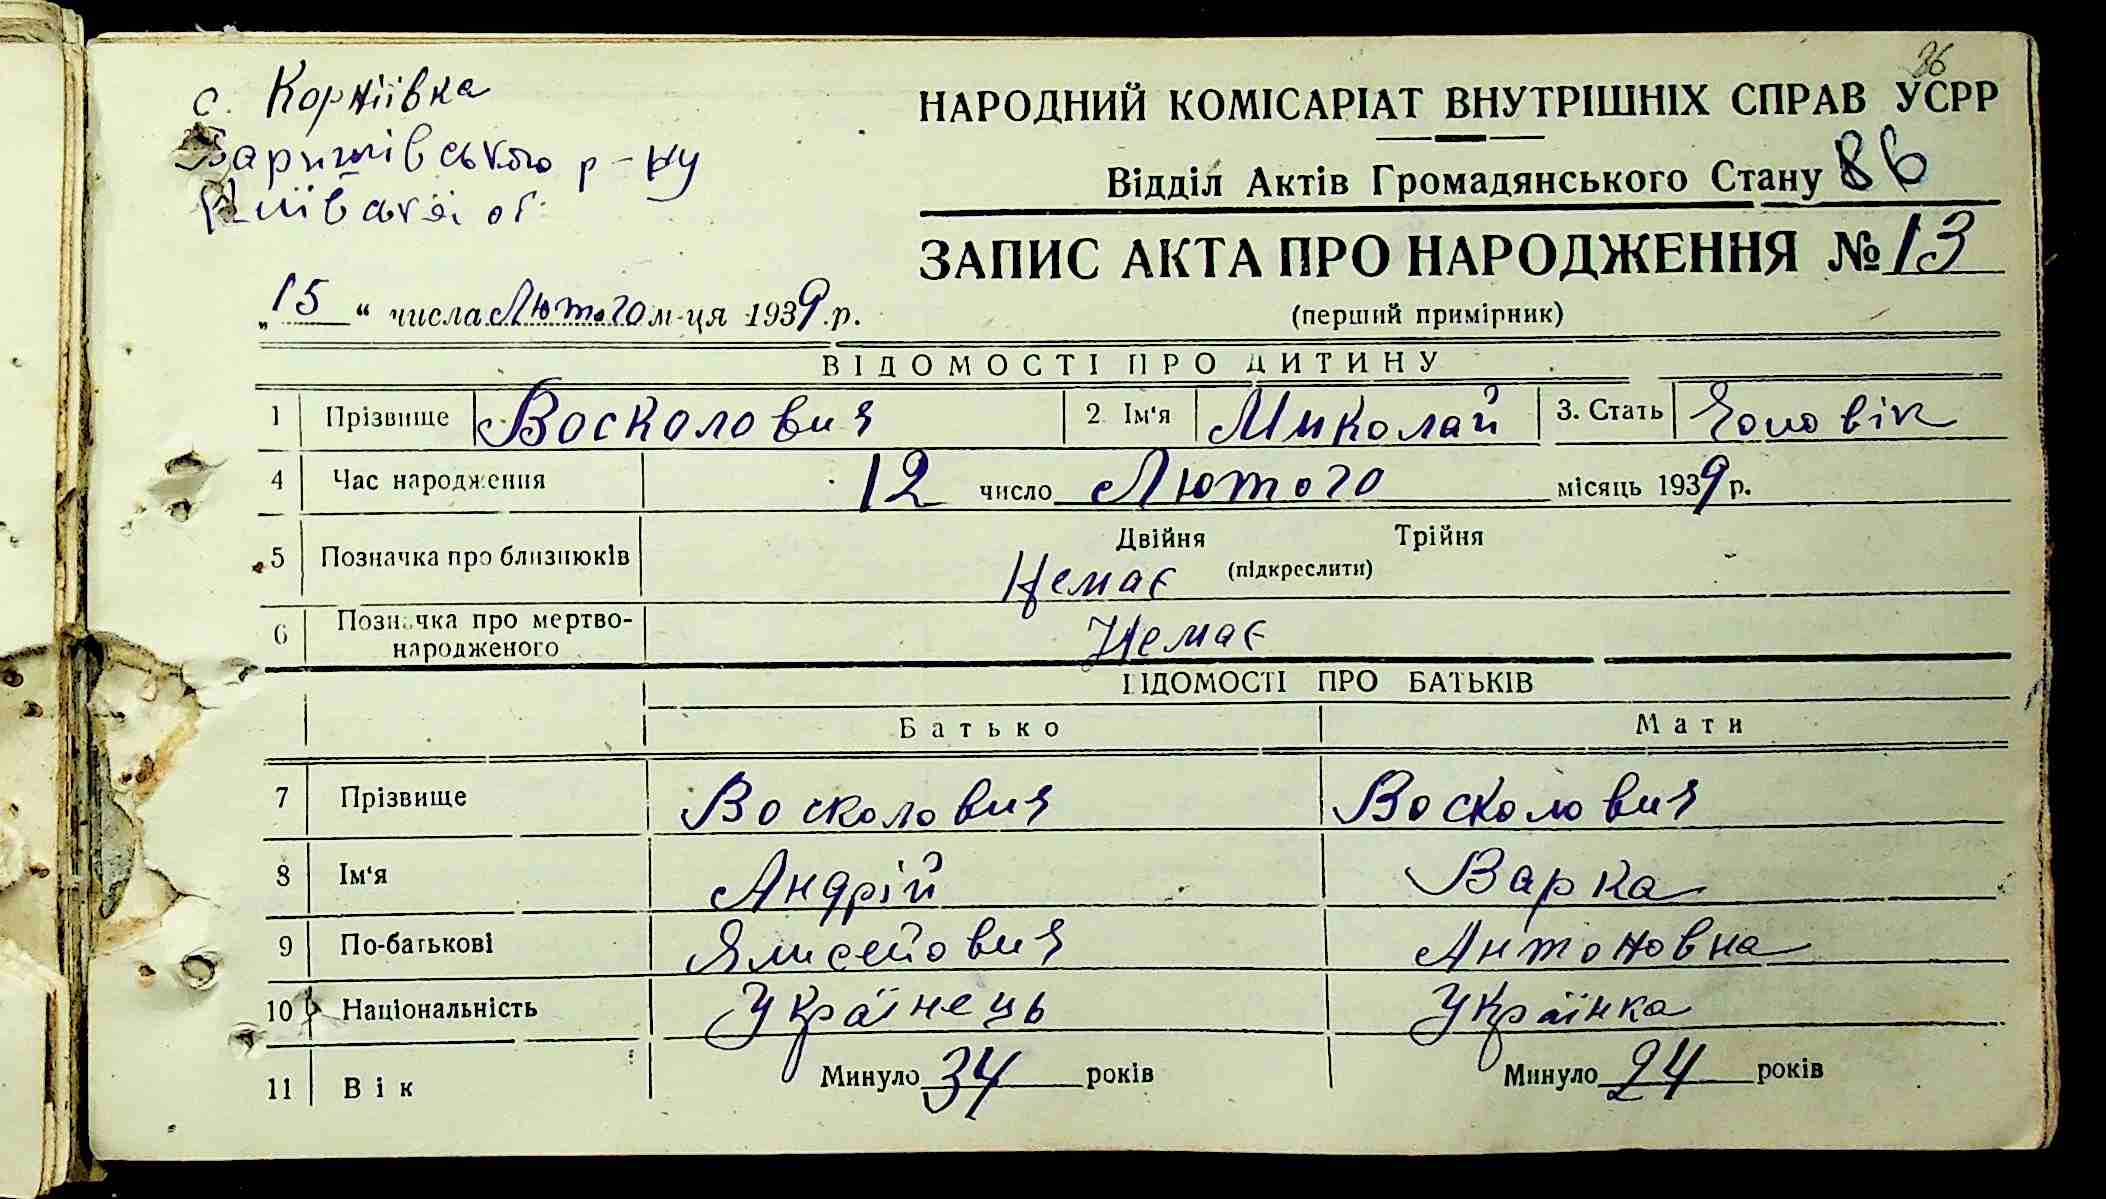 26
с. Корніївка
Баришівського р-ну
Київської об.
НАРОДНИЙ КОМІСАРІАТ ВНУТРІШНІХ СПРАВ УСРР
Відділ Актів Громадянського Стану 86
ЗАПИС АКТА ПРО НАРОДЖЕННЯ № 13
(перший примірник)
„15“ числа Лютого м-ця 1939.р.
ВІДОМОСТІ ПРО ДИТИНУ
1 Прізвище Восколович 2. Ім'я Миколай 3. Стать Чоловік
4 Час народження 12 число Лютого місяць 1939 р.
5 Позначка про близнюків Двійня Трійня
(підкреслити) Немає
6 Позначка про мертво-
народженого Немає
ВІДОМОСТІ ПРО БАТЬКІВ
Батько Мати
7 Прізвище Восколович Восколович
8 Ім'я Андрій Варка
9 По-батькові Ялисейович Антоновна
10 Національність Українець Українка
11 Вік Минуло 34 років Минуло 24 років